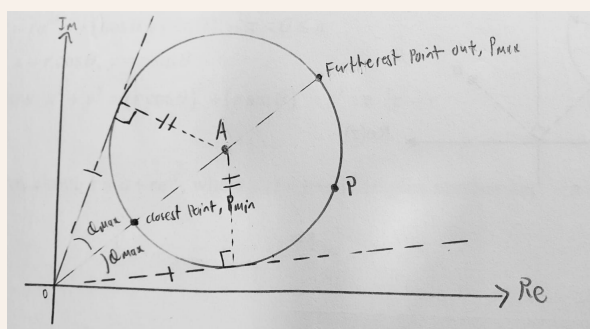 Im
Furtherest Point out, Pmax
A
closest Point, Pmin
P
θmax
θmax
0
Re